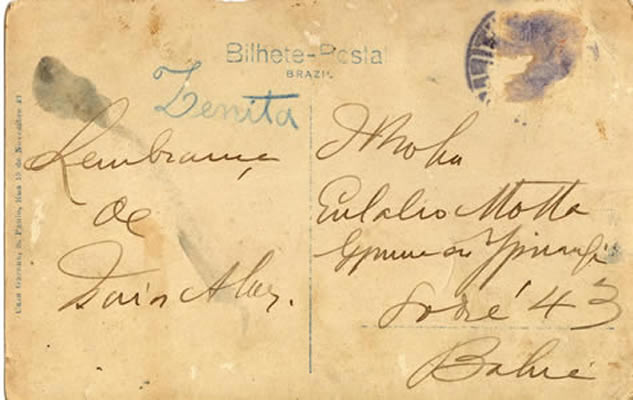 Bilhete-Postal
BRAZIL
Zenita
Lembrança
de
Eulalio Motta
Gymnasio Ypiranga
Sodré 43
Bahia
Casa Garraux, S. Paulo, Rua 15 de Novembro